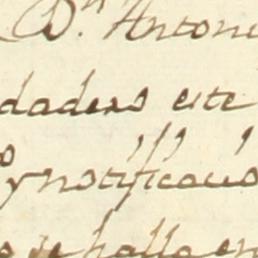 Dⁿ. Antoni
daders este
y notificacio
se halla en